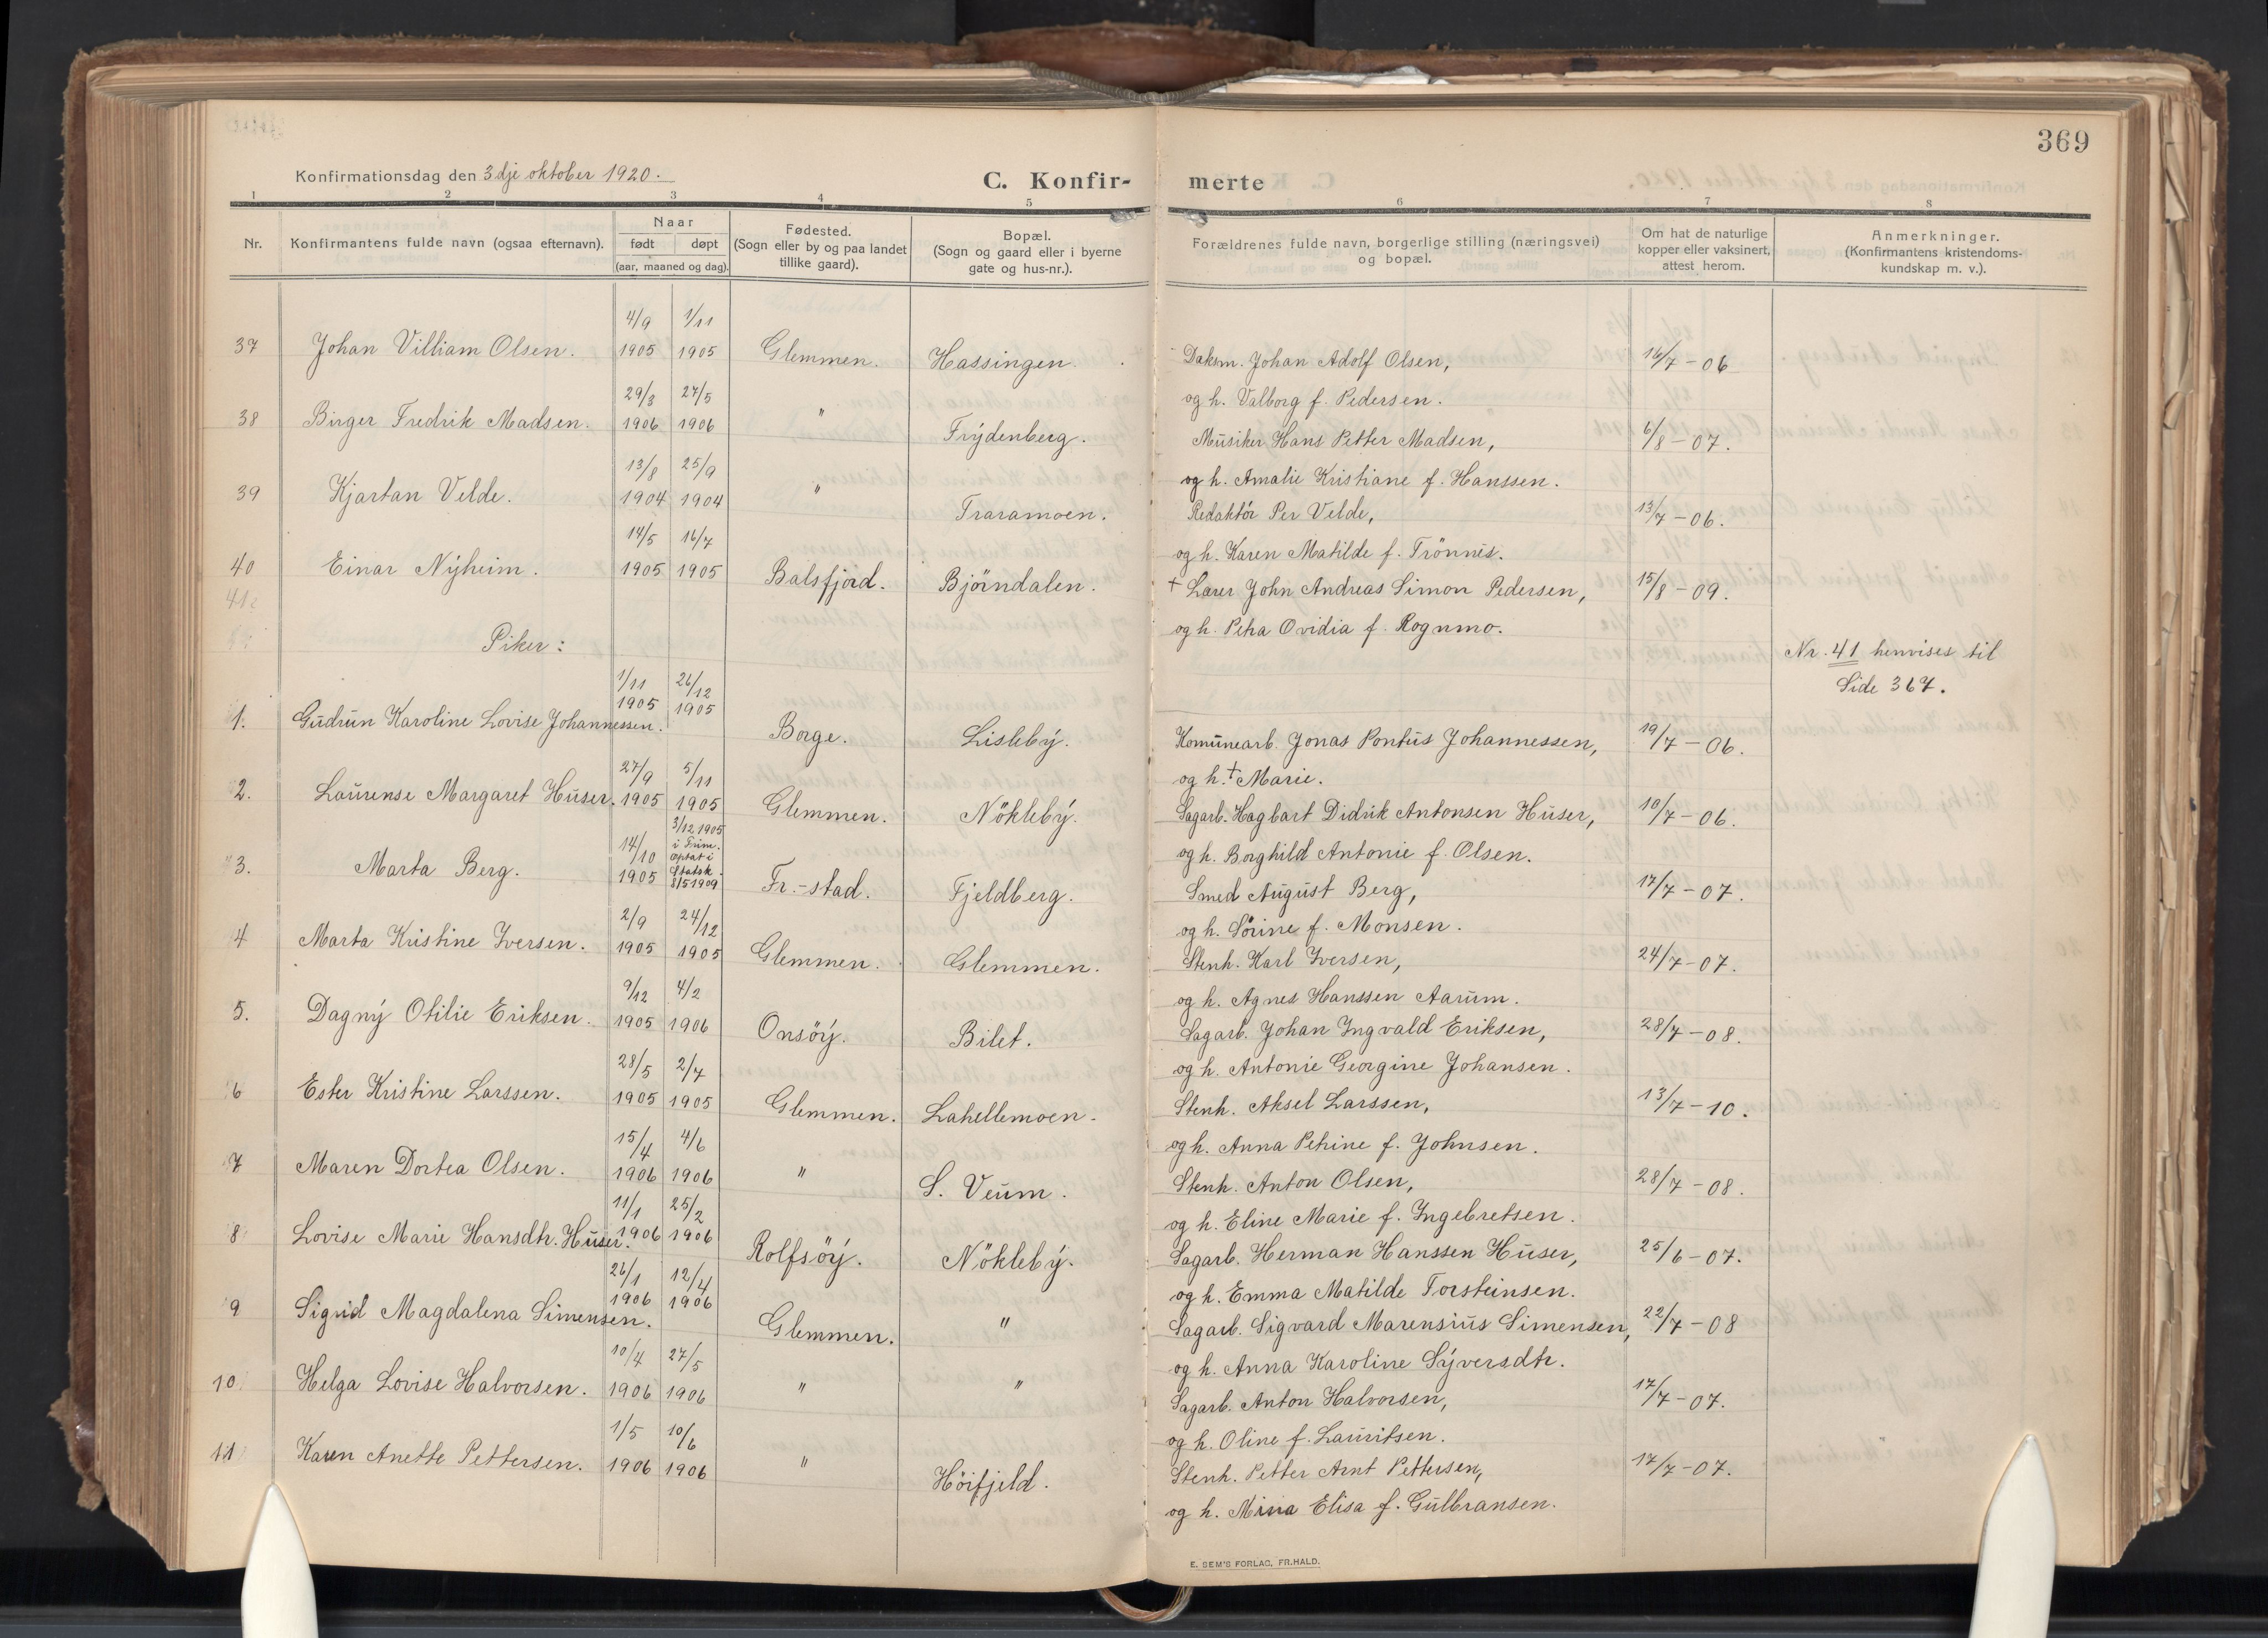 369
Konfirmationsdag den 3dje oktober 1920.
C. Konfir-
merte
1 2 3 4 5 6 7 8
Nr. Konfirmantens fulde navn (ogsaa efternavn). Naar født døpt (aar, maaned og dag). Fødested. (Sogn eller by og paa landet tillike gaard). Bopæl. (Sogn og gaard eller i byerne gate og hus-nr.). Forældrenes fulde navn, borgerlige stilling (næringsvei) og bopæl. Om hat de naturlige kopper eller vaksinert, attest herom. Anmerkninger. (Konfirmantens kristendoms- kundskap m. v.).
37 Johan Villiam Olsen. 4/9 1905 1/11 1905 Glemmen. Hassingen. Daksm. Johan Adolf Olsen, 16/7-06
og h. Valborg f. Pedersen.
38 Birger Fredrik Madsen. 29/3 1906 27/5 1906 " Frydenberg. Musiker Hans Petter Madsen, 6/8-07.
og h. Amalie Kristiane f. Hanssen.
39 Kjartan Velde. 13/8 1904 25/9 1904 " Traramoen. Redaktör Per Velde, 13/7-06.
og h. Karen Matilde f. Trönnes.
40 Einar Nyheim. 14/5 1905 16/7 1905 Balsfjord. Bjöindalen. † Lærer John Andreas Simon Pedersen, 15/8-09.
og h. Petra Ovidia f. Rognmo.
41
Piker:
Nr. 41 henvises til
Side 367.
1. Gudrun Karoline Lovise Johannessen. 1/11 1905 26/12 1905 Borge. Lisleby. Komunearb. Jonas Pontus Johannessen, 19/7-06.
og h. † Marie.
2. Laurense Margaret Huser. 27/9 1905 5/11 1905 Glemmen. Nökleby. Sagarb. Hagbart Didrik Antonsen Huser, 10/7-06.
og h. Borghild Antonie f. Olsen.
3. Marta Berg. 14/10 1905 3/12 1905 i Frim. optat i Statsk. 8/5 1909 Fr.-stad. Fjeldberg. Smed August Berg, 17/7-07.
og h. Sörine f. Monsen.
4 Marta Kristine Iversen. 2/9 1905 24/12 1905 Glemmen. Glemmen. Stenh. Karl Iversen, 24/7-07.
og h. Agnes Hanssen Aarum.
5. Dagny Otilie Eriksen. 9/12 1905 4/2 1906 Onsöy. Bilet. Sagarb. Johan Ingvald Eriksen, 28/7-08.
og h. Antonie Georgine Johansen.
6 Ester Kristine Larssen. 28/5 1905 2/7 1905 Glemmen. Lahellemoen. Stenh. Aksel Larssen, 13/7-10.
og h. Anna Petrine f. Johnsen.
7 Maren Dortea Olsen. 15/4 1906 4/6 1906 " S. Veum. Stenh. Anton Olsen, 28/7-08.
og h. Eline Marie f. Ingebretsen.
8 Lovise Marie Hansdtr. Huser. 11/1 1906 25/2 1906 Rolfsöy. Nökleby. Sagarb. Herman Hanssen Huser, 25/6-07.
og h. Emma Matilde Torsteinsen.
9 Sigrid Magdalena Simensen. 26/1 1906 12/4 1906 Glemmen. " Sagarb. Sigvard Marensius Simensen, 22/7-08
og h. Anna Karoline Syversdtr.
10 Helga Lovise Halvorsen. 10/4 1906 27/5 1906 " " Sagarb. Anton Halvorsen, 17/7-07.
og h. Oline f. Lauritsen.
11 Karen Anette Pettersen. 1/5 1906 10/6 1906 " Höifjeld. Stenh. Petter Arnt Pettersen, 17/7-07.
og h. Mina Elisa f. Gulbransen.
E. SEM'S FORLAG, FR.HALD.